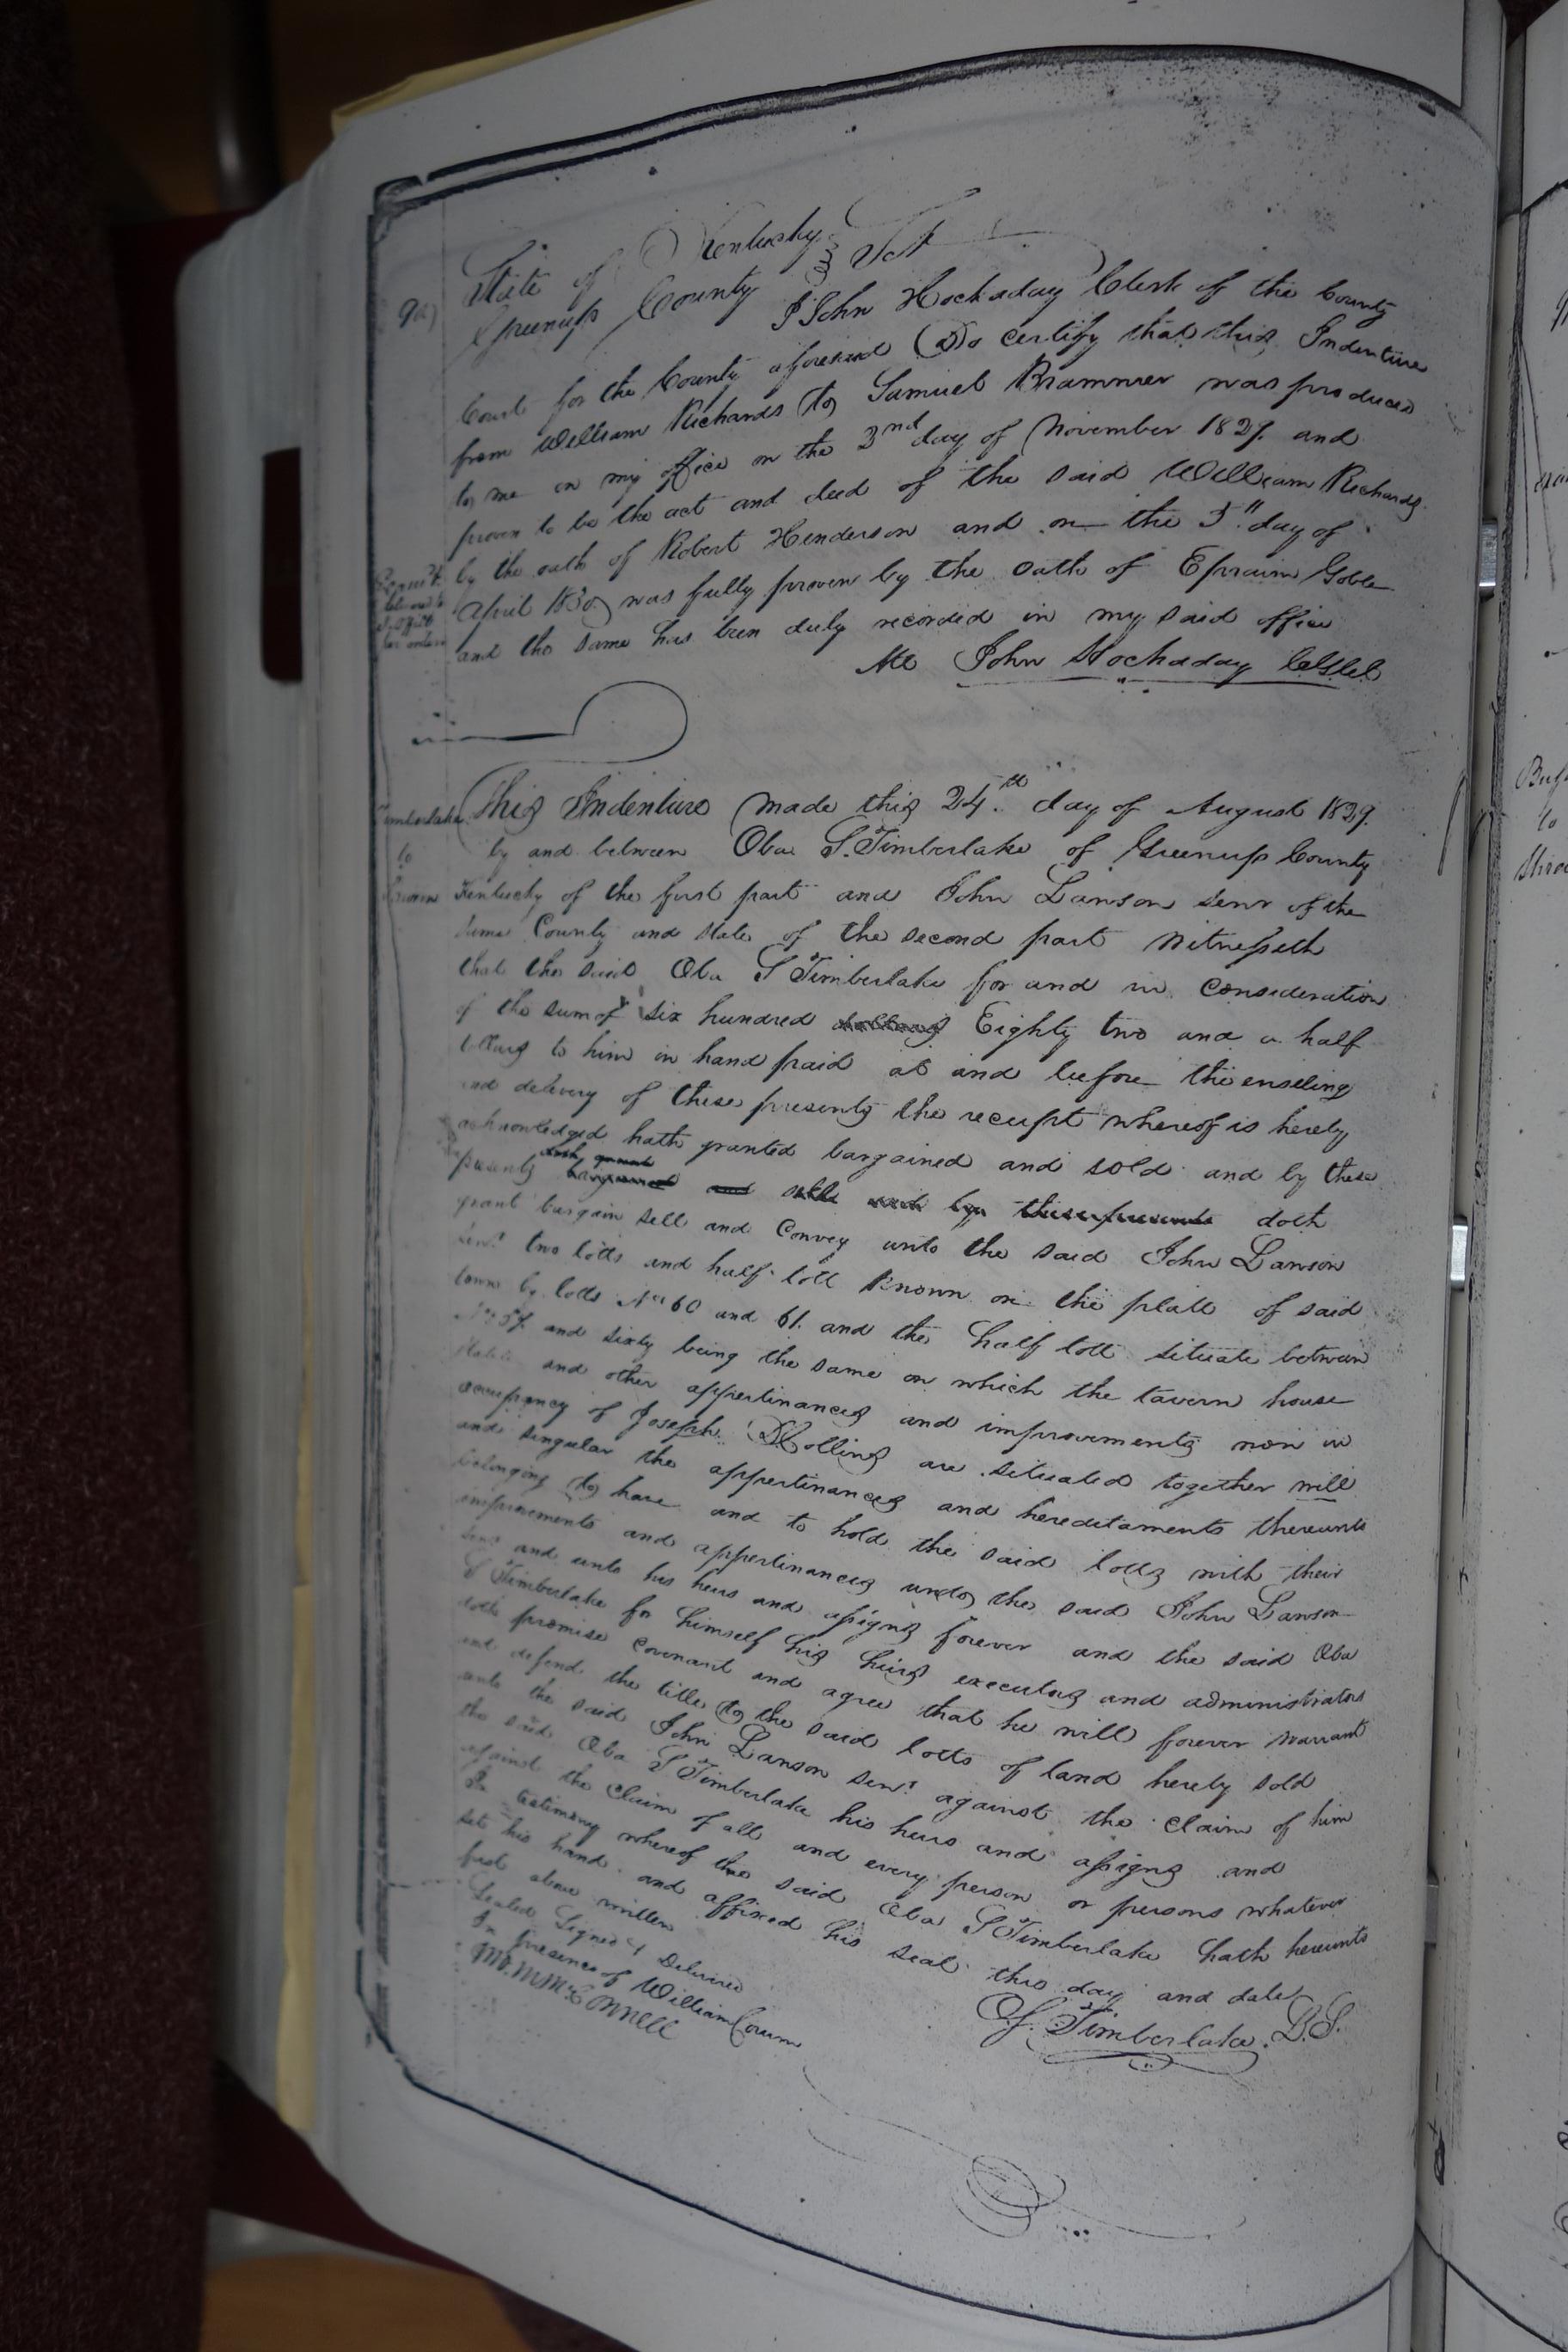 State of Kentucky } Sct
Greenup County
I John Hockaday Clerk of the County
Court for the County aforesaid Do certify that this Indenture
from William Richards to Samuel Brammer was produced
to me in my office on the 3nd day of November 1827. and
proven to be the act and deed of the said William Richards
by the oath of Robert Henderson and on the 5" day of
April 1830 was fully proven by the oath of Epraim Goble
and the same has been duly recorded in my said office
Att John Hockaday
Timberlake
to
Lawson
This Indenture made this 24.th day of August 1829.
by and between Oba S. Timberlake of Greenup County
Kentucky of the first part and John Lawson senr of the
same County and state of the second part Witnesseth
that the said Oba S Timberlake for and in consideration
of the sum of six hundred dollars Eighty two and a half
dollars to him in hand paid at and before the enseling
and delivery of these presents the receipt whereof is hereby
acknowledged hath granted bargained and sold and by these
presents bargained and sells and by these presents doth
grant bargain sell and Convey unto the said John Lawson
senr two lotts and half lott Known on the platt of said
town by lotts No 60 and 61. and the half lott situate between
No 59. and sixty being the same on which the tavern house
stable and other appertinances and improvements now in
occupancy of Joseph are situated together will
and singular the appertinances and hereditaments thereunto
belonging to have and to hold the said lotts with their
improvements and appertinances unto the said John Lawson
senr and unto his heirs and assigns forever and the said Oba
S Timberlake for himself his heirs executors and administrators
doth promise covenant and agree that he will forever warrant
and defend the title to the said lotts of land hereby sold
unto the said John Lawson senr. against the claim of him
the said Oba S Timberlake his heirs and assigns and
against the claim of all and every person or persons whatever
In testimony whereof the said Oba S Timberlake hath hereunto
set his hand and affixed his seal this day and date
first above written
O. S. Timberlake. L.S.
Sealed Signed & Delivered
In presence of William Corum